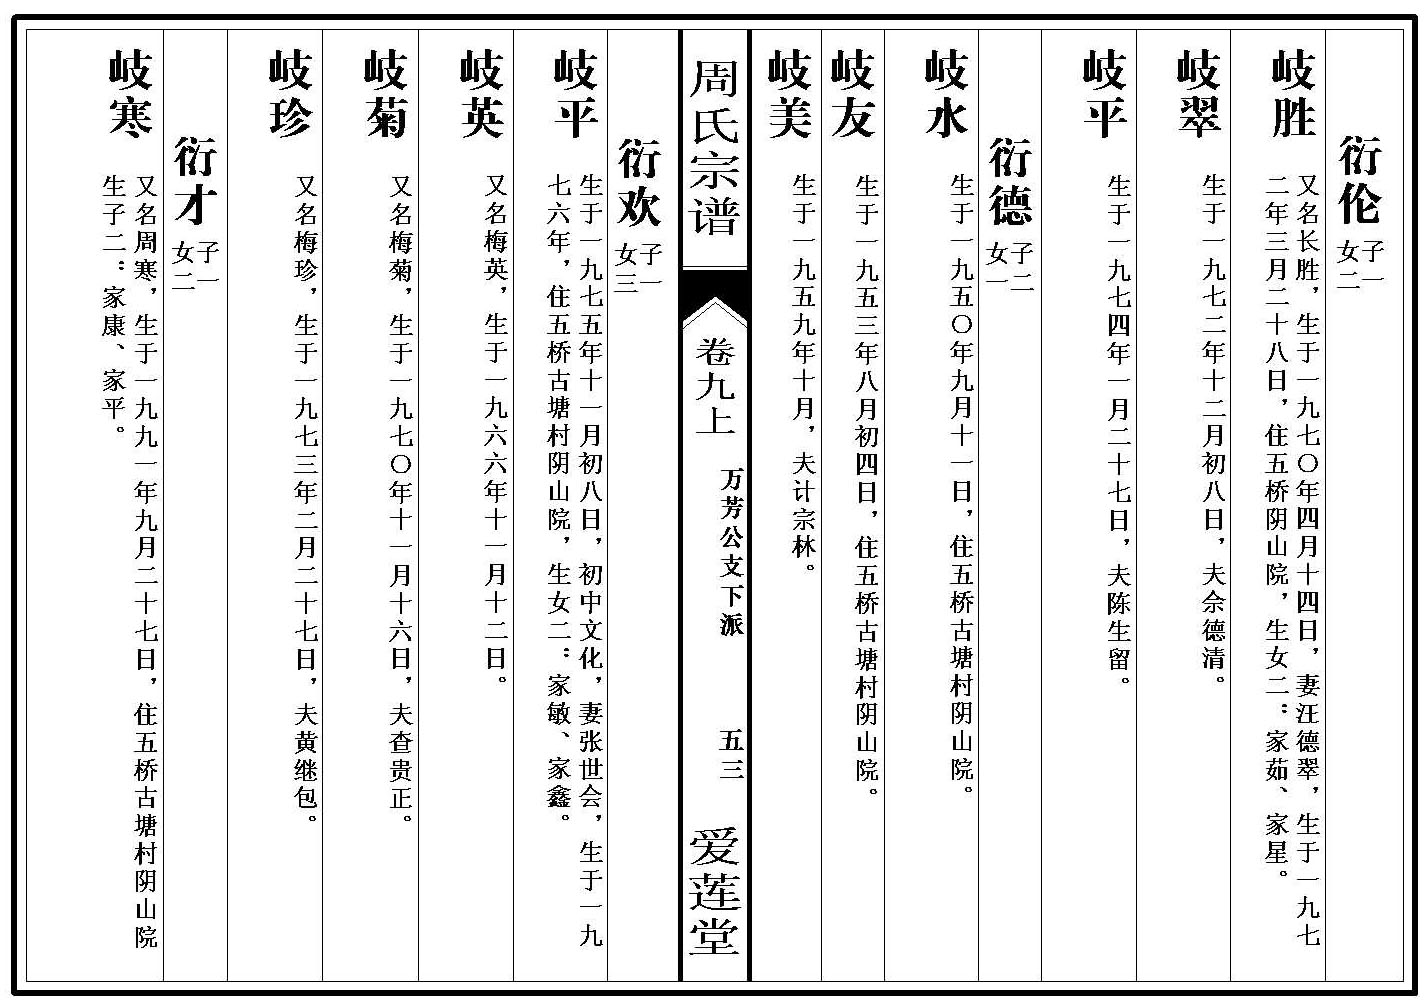 衍伦
子一
女二
岐胜
又名长胜，生于一九七〇年四月十四日，妻汪德翠，生于一九七
二年三月二十八日，住五桥阴山院，生女二：家茹、家星。
岐翠
生于一九七二年十二月初八日，夫余德清。
岐平
生于一九七四年一月二十七日，夫陈生留。
衍德
子二
女一
岐水
生于一九五〇年九月十一日，住五桥古塘村阴山院。
岐友
生于一九五三年八月初四日，住五桥古塘村阴山院。
岐美
生于一九五九年十月，夫计宗林。
周氏宗谱
卷九上
万芳公支下派
五三
爱莲堂
衍欢
子一
女三
岐平
生于一九七五年十一月初八日，初中文化，妻张世会，生于一九
七六年，住五桥古塘村阴山院，生女二：家敏、家鑫。
岐英
又名梅英，生于一九六六年十一月十二日。
岐菊
又名梅菊，生于一九七〇年十一月十六日，夫查贵正。
岐珍
又名梅珍，生于一九七三年二月二十七日，夫黄继包。
衍才
子一
女二
岐寒
又名周寒，生于一九九一年九月二十七日，住五桥古塘村阴山院
生子二：家康、家平。